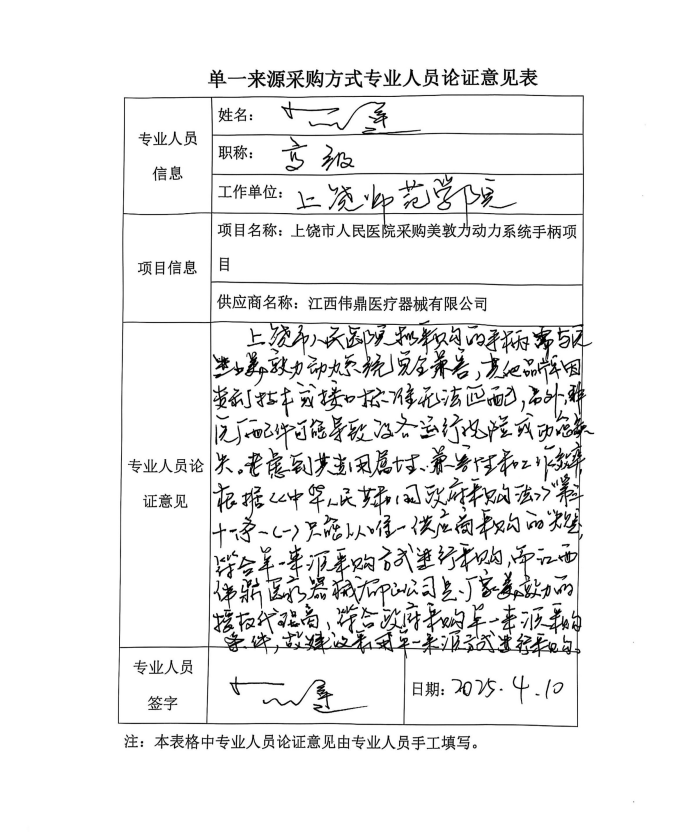 单一来源采购方式专业人员论证意见表
专业人员
信息
姓名：
职称： 高级
工作单位： 上饶师范学院
项目信息
项目名称：上饶市人民医院采购美敦力动力系统手柄项
目
供应商名称：江西伟鼎医疗器械有限公司
专业人员论
证意见
上饶市人民医院拟采购的手柄需与
美敦力动力系统完全兼容，其他品牌因
专利技术或接口标准无法匹配，另外，非
原厂配件可能导致设备运行故障或功能缺
失。考虑到其专用属性、兼容性和工作效率
根据《中华人民共和国政府采购法》第三
十一条(一)只能从唯一供应商采购的
符合单一来源采购方式进行采购，而江西
伟鼎医疗器械有限公司是厂家美敦力的
授权代理商，符合政府采购单一来源采购
条件，故建议采用单一来源方式进行采购。
专业人员
签字
日期：2025.4.10
注：本表格中专业人员论证意见由专业人员手工填写。